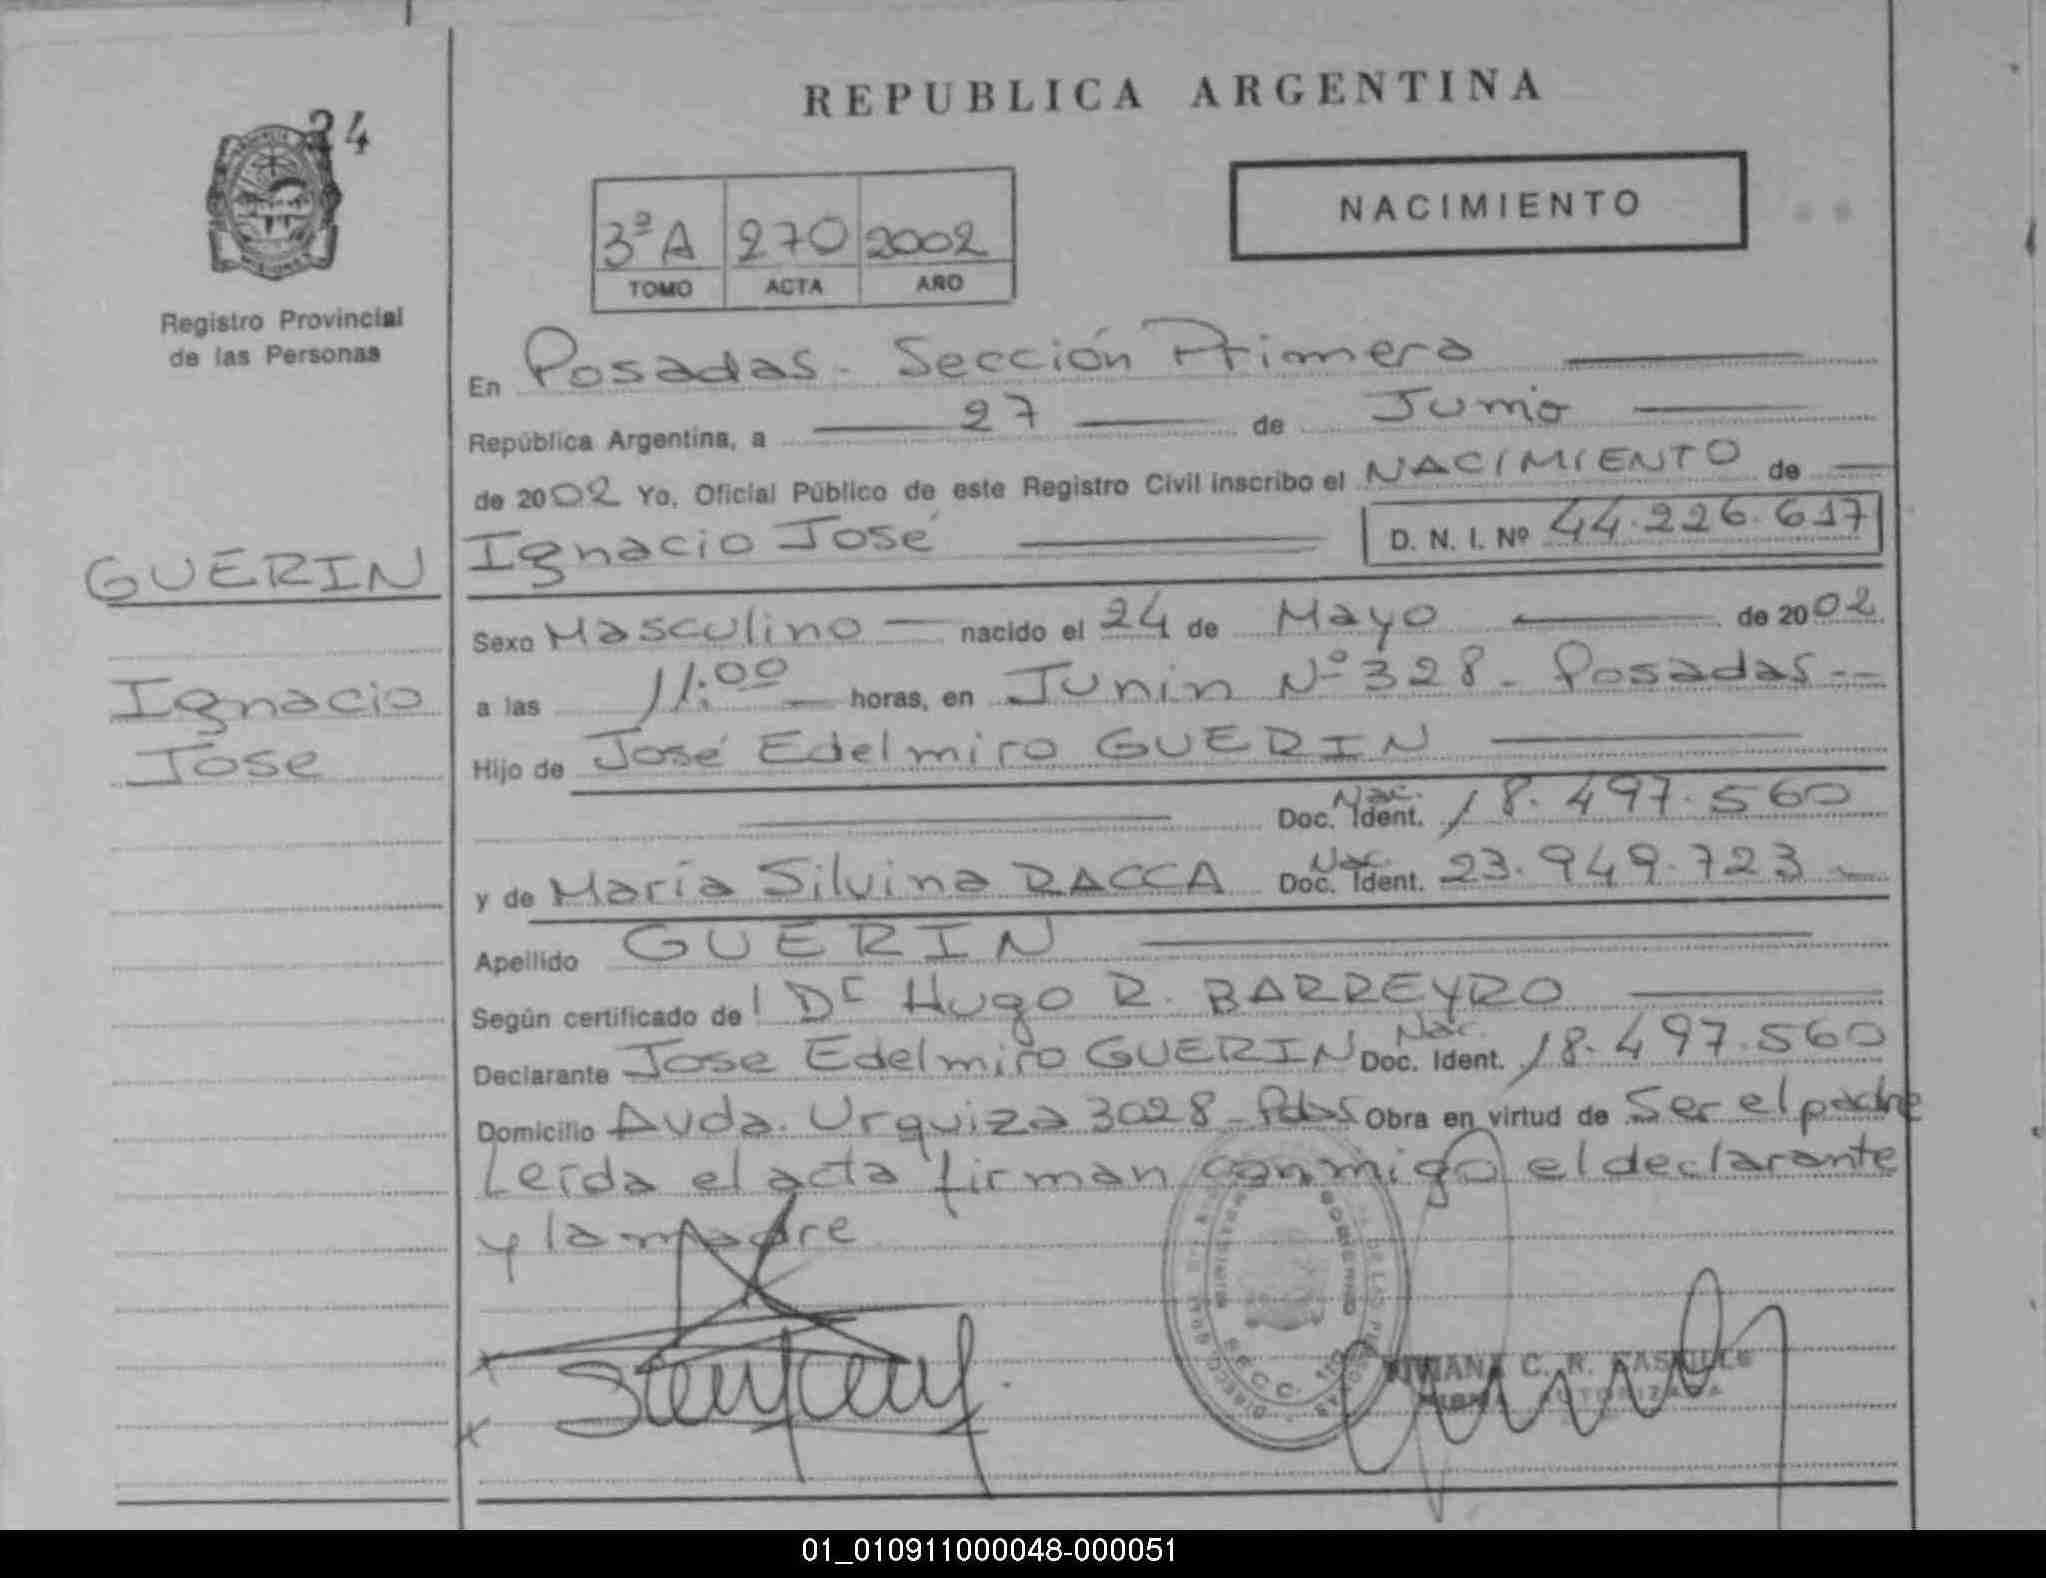 REPUBLICA ARGENTINA
24
NACIMIENTO
3ª A 270 2002
TOMO ACTA AÑO
Registro Provincial
de las Personas
En Posadas - Sección Primera
República Argentina, a 27 de Junio
de 2002 Yo, Oficial Público de este Registro Civil inscribo el NACIMIENTO de
Ignacio José D. N. I. Nº 44.226.617
GUERIN
Ignacio
Jose
Sexo Masculino nacido el 24 de Mayo de 2002
a las 11:00 horas, en Junin Nº 328 - Posadas --
Hijo de José Edelmiro GUERIN
Doc. Nac. Ident. 18.497.560
y de María Silvina RACCA Doc. Nac. Ident. 23.949.723
Apellido GUERIN
Según certificado del Dr Hugo R. BARREYRO
Declarante Jose Edelmiro GUERIN Doc. Nac. Ident. 18.497.560
Domicilio Avda. Urquiza 3028 - Pdas Obra en virtud de Ser el padre
Leída el acta firman conmigo el declarante
y la madre
SECC.
C. R.
AUTORIZADA
01_010911000048-000051